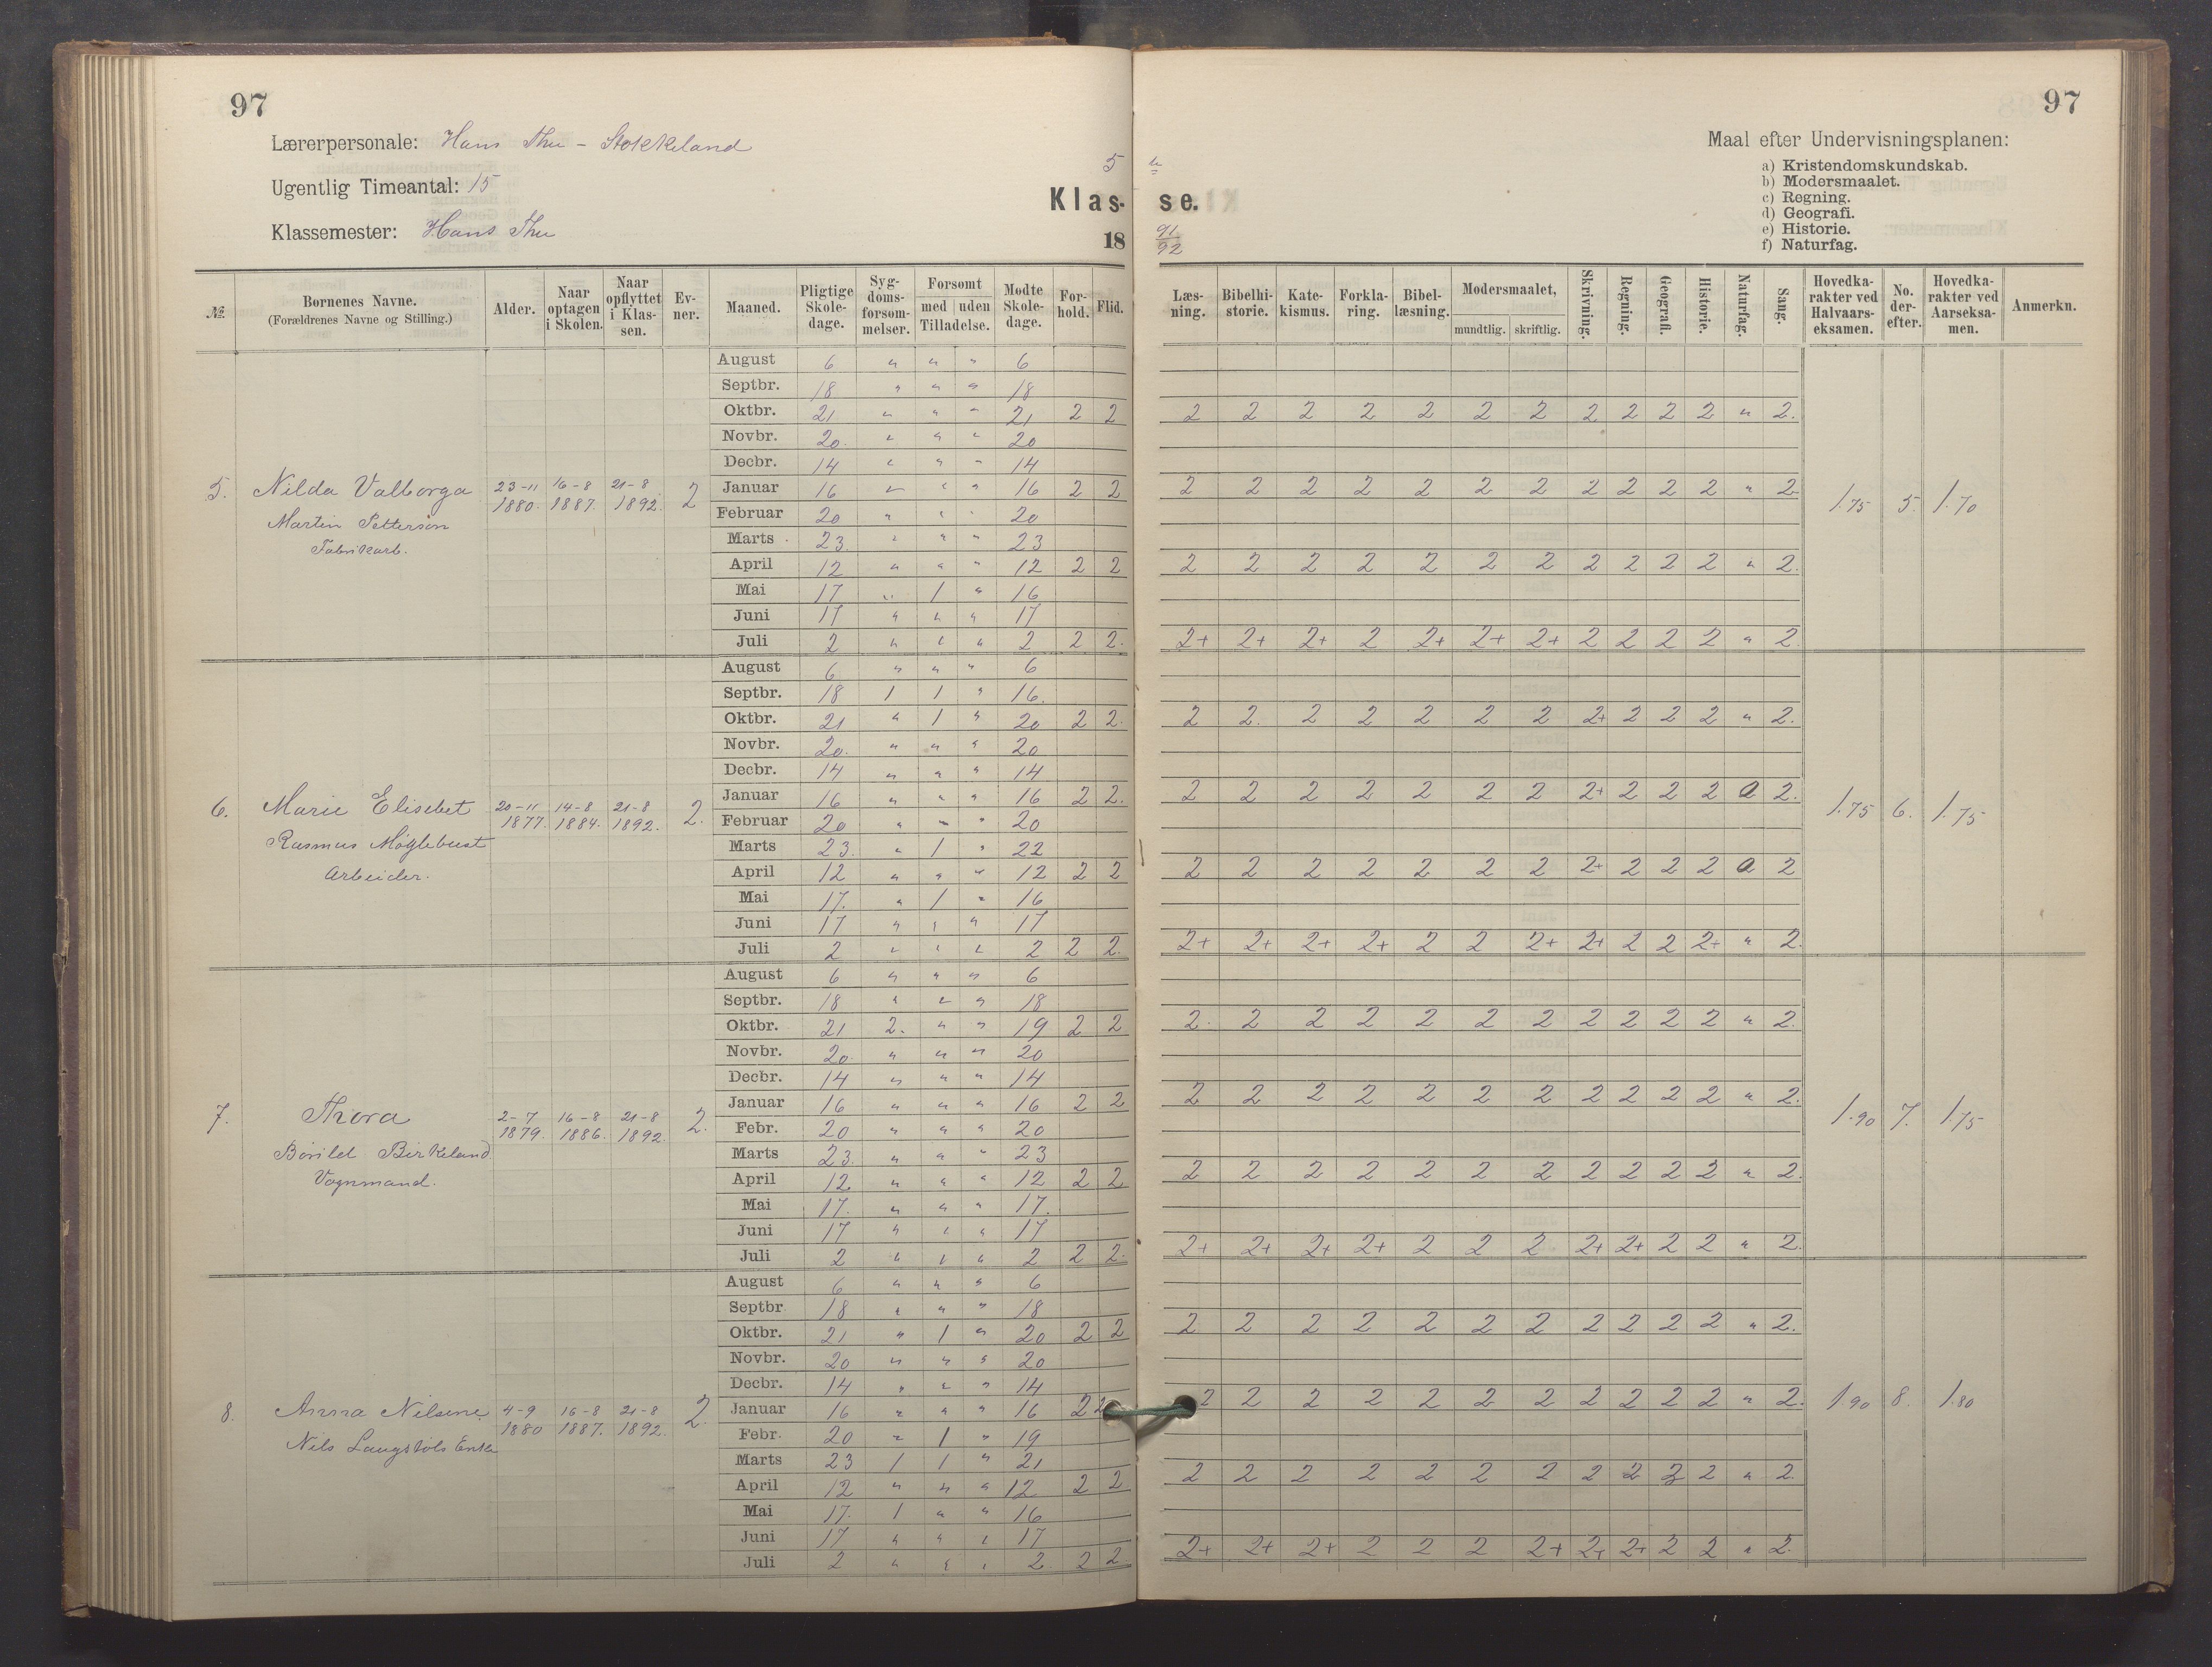 97
97
Lærerpersonale: Hans Thu - Stokkeland
Ugentlig Timeantal: 15
Klassemester: Hans Thu
5 te
Klas- se.
18 91/92
Maal efter Undervisningsplanen:
a) Kristendomskundskab.
b) Modersmaalet.
c) Regning.
d) Geografi.
e) Historie.
f) Naturfag.
No. Børnenes Navne. (Forældrenes Navne og Stilling.) Alder. Naar optagen i Skolen. Naar opflyttet i Klassen. Evner. Maaned. Pligtige Skoledage. Sygdomsforsømmelser. Forsømt med uden Tilladelse. Mødte Skoledage. Forhold. Flid. Læsning. Bibelhistorie. Katekismus. Forklaring. Bibellæsning. Modersmaalet, mundtlig. skriftlig. Skrivning. Regning. Geografi. Historie. Naturfag. Sang. Hovedkarakter ved Halvaarseksamen. No. derefter. Hovedkarakter ved Aarseksamen. Anmerkn.
August 6 " " " 6
Septbr. 18 " " " 18
Oktbr. 21 " " " 21 2 2 2 2 2 2 2 2 2 2 2 2 2 " 2.
Novbr. 20. " " " 20
Decbr. 14 " " " 14
5. Nilda Valborga 23-11 1880. 16-8 1887. 21-8 1892. 2
Martin Pettersön
Fabrikarb.
Januar 16 " " " 16 2 2 2 2 2 2 2 2 2 2 2 2 2 " 2 1.75 5. 1.70
Februar 20 " " " 20
Marts 23. " " " 23
April 12 " " " 12 2 2 2 2 2 2 2 2 2 2 2 2 2 " 2.
Mai 17 " 1 " 16
Juni 17 " " " 17
Juli 2 " " " 2 2 2. 2+ 2+ 2+ 2 2+ 2+ 2+ 2 2 2 2 " 2
August 6 " " " 6
Septbr. 18 1 1 " 16.
Oktbr. 21 " 1 " 20 2 2. 2 2. 2 2 2 2 2 2+ 2 2 2 " 2.
Novbr. 20. " " " 20
Decbr. 14 " " " 14
6. Marie Elisebet 20-11 1877. 14-8 1884. 21-8 1892. 2.
Rasmus Møglebust
Arbeider.
Januar 16 " " " 16 2 2. 2 2 2 2 2 2 2 2+ 2 2 2 0 2. 1.75 6. 1.75
Februar 20 " " " 20
Marts 23. " 1 " 22
April 12 " " " 12 2 2 2 2 2 2 2 2 2 2+ 2 2 2 0 2
Mai 17. " 1 " 16
Juni 17 " " " 17
Juli 2 " " " 2 2 2. 2+ 2+ 2+ 2+ 2 2 2+ 2+ 2 2 2+ " 2.
August 6 " " " 6
Septbr. 18 " " " 18
Oktbr. 21 2. " " 19 2 2 2. 2 2 2 2 2 2 2 2 2 2 " 2.
Novbr. 20. " " " 20
Decbr. 14 " " " 14
7. Thora 2-7 1879. 16-8 1886. 21-8 1892. 2.
Birkeland
Vognmand.
Januar 16 " " " 16 2 2 2 2 2 2 2 2 2 2 2 2 2 " 2. 1.90 7. 1.75
Febr. 20 " " " 20
Marts 23. " " " 23
April 12. " " " 12 2 2 2 2 2 2 2 2 2 2 2 2 2 " 2.
Mai 17. " " " 17.
Juni 17 " " " 17
Juli 2 " " " 2 2 2. 2+ 2+ 2+ 2+ 2 2 2 2+ 2+ 2 2 " 2.
August 6 " " " 6
Septbr 18 " " " 18
Oktbr. 21 " 1 " 20 2 2 2 2 2 2 2 2 2 2 2 2 2 " 2.
Novbr. 20 " " " 20
Decbr. 14 " " " 14
8. Anna Nilsine 4-9 1880 16-8 1887. 21-8 1892. 2.
Nils Enke
Januar 16 " " " 16 2 2 2 2 2 2 2 2 2 2 2 2 2 " 2. 1.90 8. 1.80
Febr. 20 " 1 " 19
Marts 23 1 1 " 21
April 12 " " " 12 2 2 2 2 2 2 2 2 2 2 2 2 2 " 2.
Mai 17. 1 " " 16
Juni 17 " " " 17
Juli 2 " " " 2. 2 2 2+ 2+ 2+ 2 2 2 2+ 2+ 2+ 2 2 " 2.